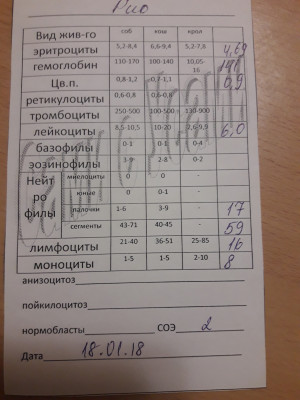 Рио
Вид жив-го соб кош крол
эритроциты 5,2-8,4 6,6-9,4 5,2-7,8 4,69
гемоглобин 110-170 100-140 10,05-16
Цв.п. 0,8-1,2 0,7-1,1 0,9
ретикулоциты 0,6-0,8 0,6-0,8
тромбоциты 250-500 100-500 130-900
лейкоциты 8,5-10,5 10-20 2,6-9,9 6,0
базофилы 0-1 0-1 0-4
эозинофилы 3-9 2-8 0-2
Нейтрофилы миелоциты 0 0 -
юные 0 0-1 -
палочки 1-6 3-9 - 17
сегменты 43-71 40-45 - 59
лимфоциты 21-40 36-51 25-85 16
моноциты 1-5 1-5 2-10 8
анизоцитоз
пойкилоцитоз
нормобласты СОЭ 2
Дата 18.01.18